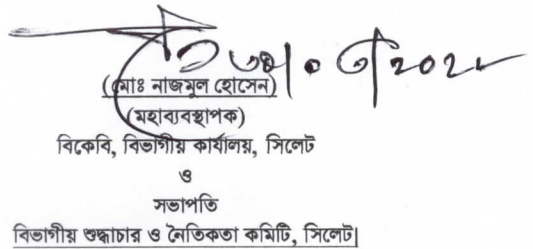 (মোঃ নাজমুল হোসেন)
(মহাব্যবস্থাপক)
বিকেবি, বিভাগীয় কার্যালয়, সিলেট
ও
সভাপতি
বিভাগীয় শুদ্ধাচার ও নৈতিকতা কমিটি, সিলেট।